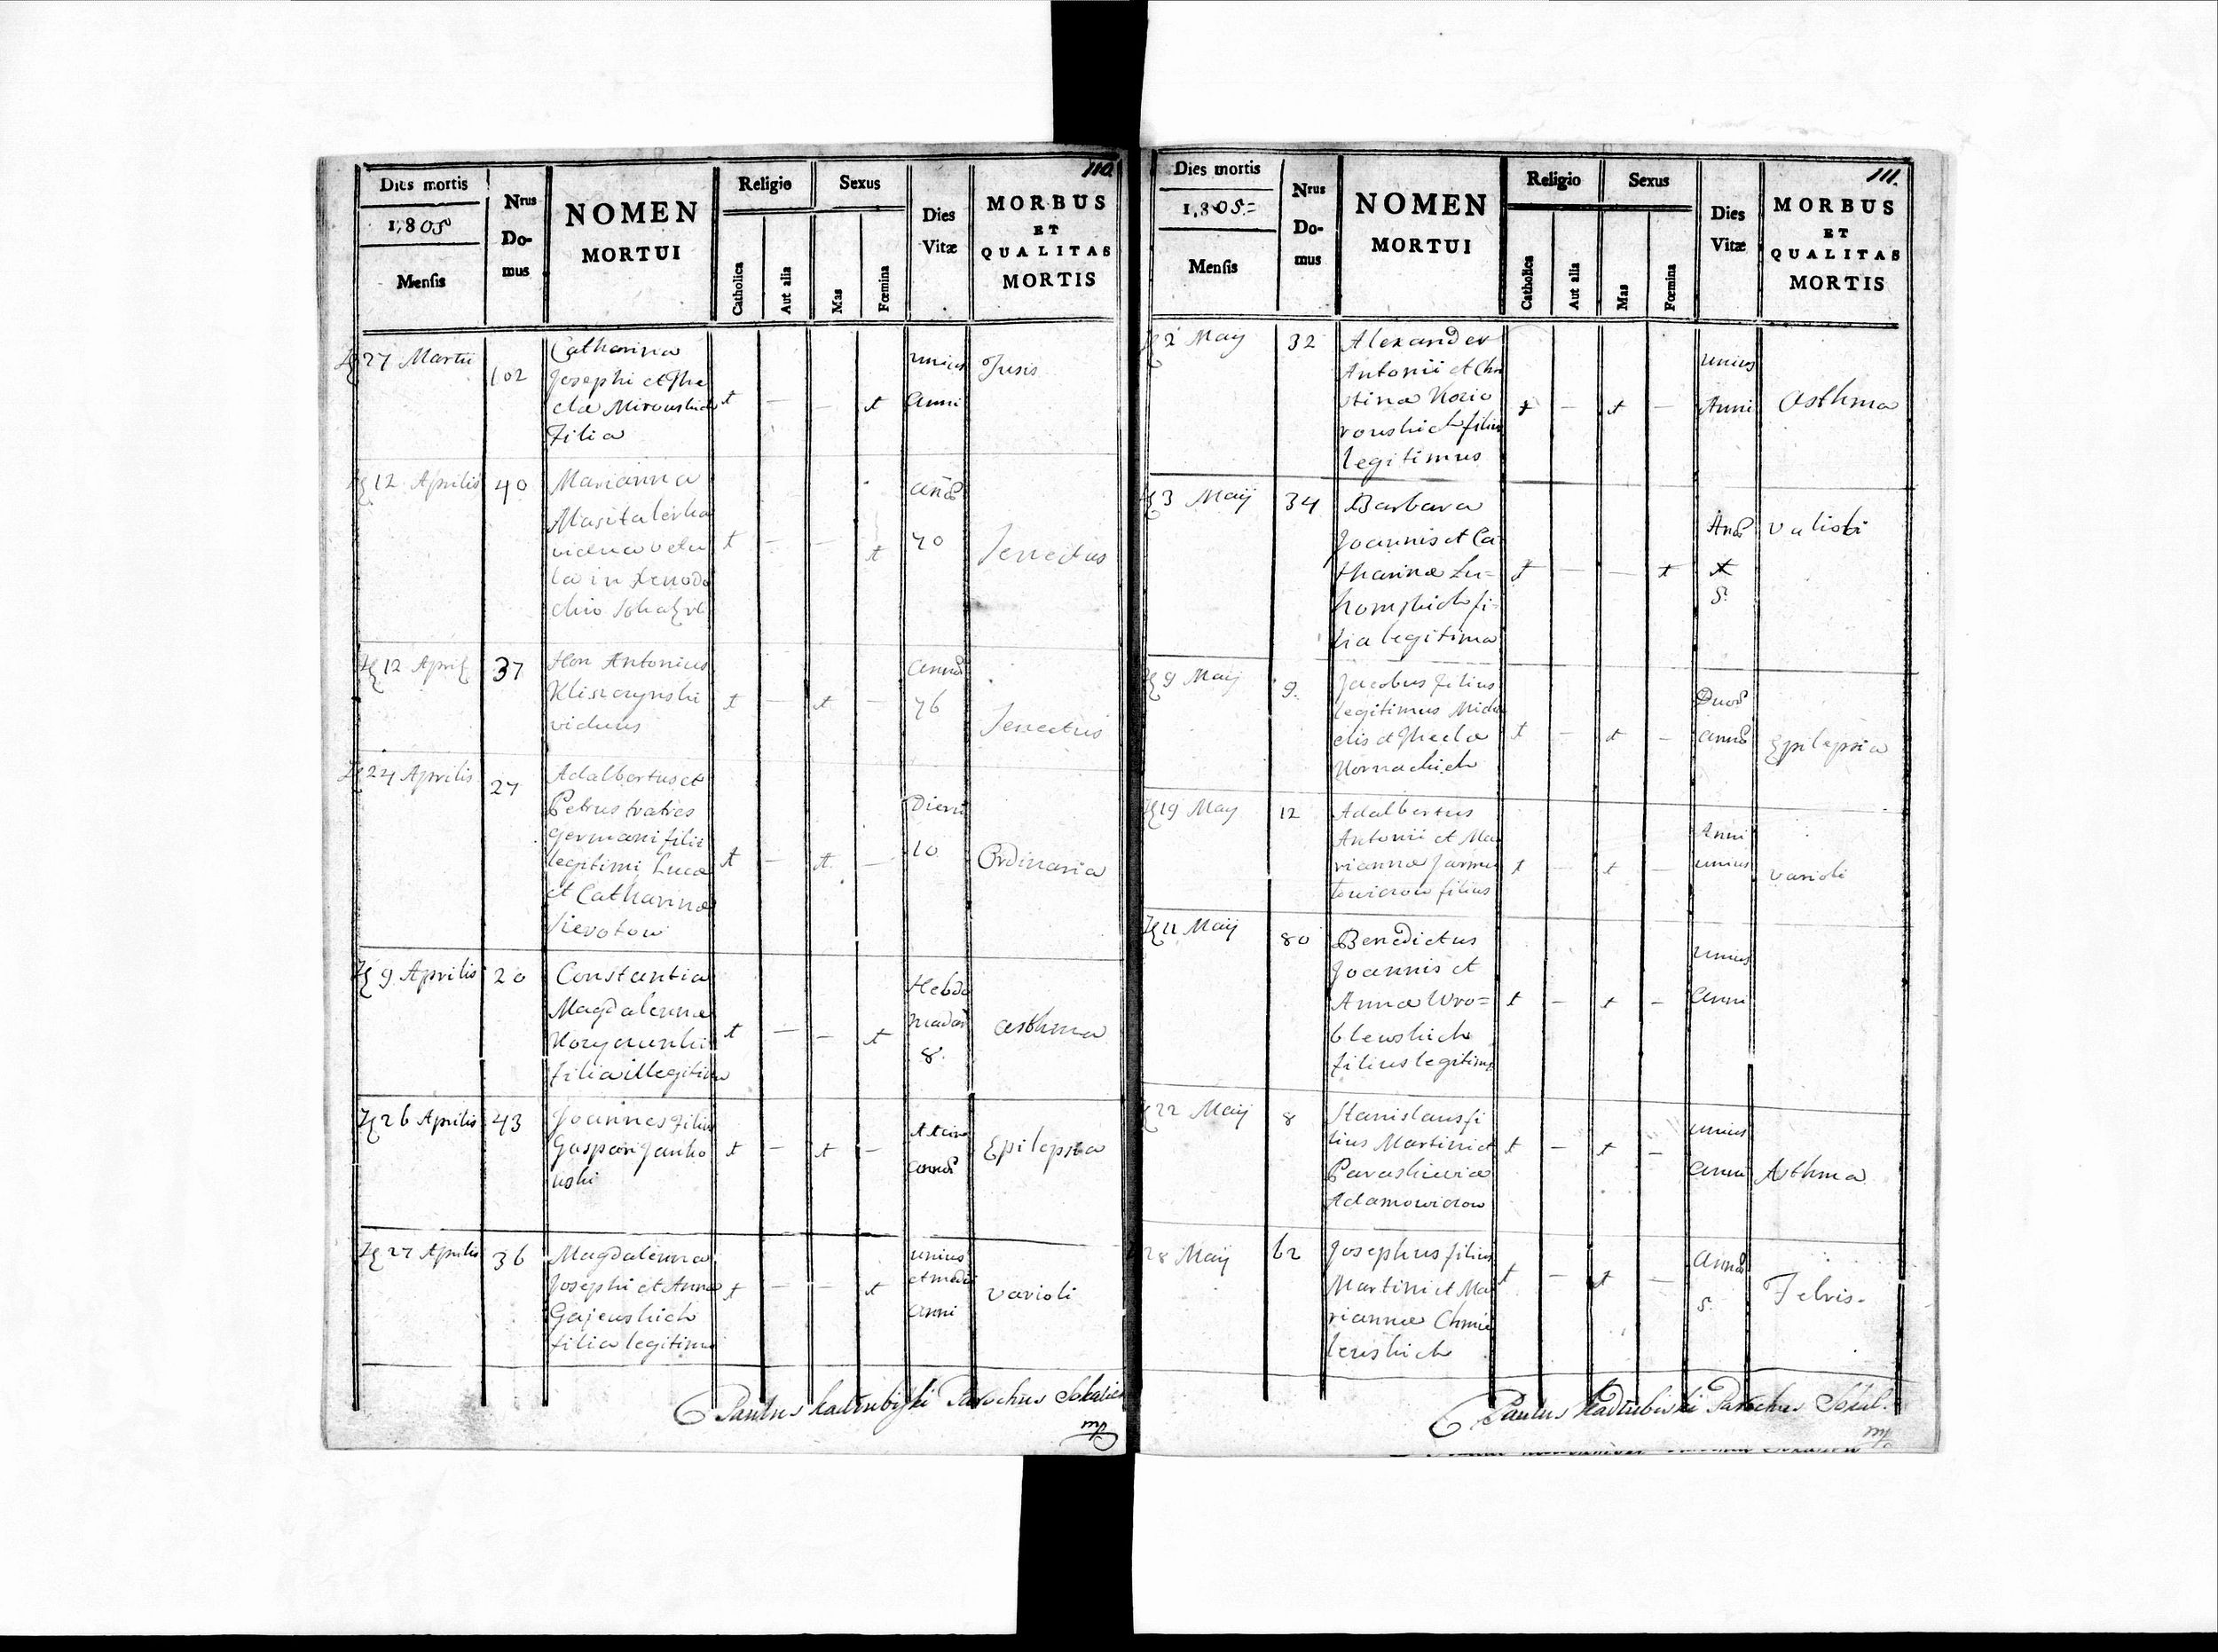 110
Dies mortis
1,805
Mensis
Nrus
Do-
mus
NOMEN
MORTUI
Religio
Catholica
Aut alia
Sexus
Mas
Fœmina
Dies
Vitæ
MORBUS
ET
QUALITAS
MORTIS
27 Martii
102
Catharina
Josephi et The
cla
Filia
t — — t
unius
Anni
Tusis
12 Aprilis
40
Marianna
vidua
la in Xenodo
chio
t — — t
70
Senectus
12 April
37
Hon Antonius
Kliszczynski
viduus
t — t —
76
Senectus
24 Aprilis
27
Adalbertus et
Petrus fratres
germani filii
legitimi Luca
et Catharina
t — t —
Dieru
10
Ordinaria
9 Aprilis
20
Constantia
Magdalenna
filia illegitima
t — — t
Hebdo
madar
8.
asthma
26 Aprilis
43
Joannes filius
Gaspari Janko
wski
t — t —
Epilepsia
27 Aprilis
36
Magdalenna
Josephi et Anna
Gajewskich
filia legitima
t — — t
unius
et medii
anni
varioli
Paulus Kadlubiski Parochus
mp
111.
Dies mortis
1,805.=
Mensis
Nrus
Do-
mus
NOMEN
MORTUI
Religio
Catholica
Aut alia
Sexus
Mas
Fœmina
Dies
Vitæ
MORBUS
ET
QUALITAS
MORTIS
2 May
32
Alexander
Antonii et Chri
stina Kozio
rowskich filius
legitimus
t — t —
unius
Anni
Asthma
3 Maij
34
Barbara
Joannis et Ca
tharina Lu=
komskich fi
lia legitima
t — — t
5.
9 Maij
9.
Jacobus filius
legitimus Micha
elis et Thecla
Kornackich
t — t —
Epilepsia
19 May
12
Adalbertus
Antonii et Ma
rianna Jarmu
towiczow filius
t — t —
Anni
unius
varioli
11 Maij
80
Benedictus
Joannis et
Anna Wro=
blewskich
filius legitim
t — t —
unius
Anni
22 Maij
8
Stanislaus fi
lius Martini et
Paraskiewia
Adamowiczow
t — t —
unius
anni
Asthma
28 Maij
62
Josephus filius
Martini et Ma
rianna Chmie
lewskich
t — t —
5.
Febris.
Paulus Kadlubiski Parochus Sokal.
mp